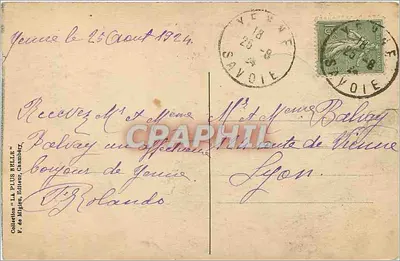 Yenne le 25 Aout 1924
YENNE
18
25-8
24
SAVOIE
YENNE
18
25-8
24
SAVOIE
Recevez Mr & Mme
Balvay un affectueux
bonjour de Yenne
J. Rolando
Mr & Mme Balvay
route de Vienne
Lyon.
CPAPHIL
Collection "LA PLUS BELLE"
F. de Miglen, Editeur, Chambéry